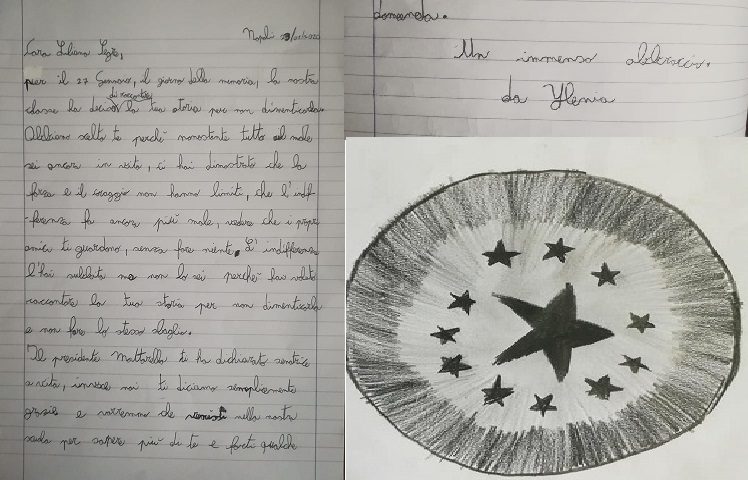 Napoli
Cara Liliana Segre,
per il 27 Gennaio, il giorno della memoria, la nostra
di raccontare
classe ha deciso la tua storia per non dimenticarla.
Abbiamo scelto te perché nonostante tutto il male
sei ancora in vita, ci hai dimostrato che la
forza e il coraggio non hanno limiti, che l'indif-
-ferenza fa ancora più male, vedere che i propri
amici ti guardano, senza fare niente. L'indifferenza
l'hai subbita ma non lo sei perché hai voluto
raccontare la tua storia per non dimenticarla
e non fare lo stesso sbaglio.
Il presidente Mattarella ti ha dichiarato senatrice
a vita, invece noi ti diciamo semplicemente
grazie e vorremmo che venissi nella nostra
scuola per sapere più di te e farti qualche
domanda.
Un immenso abbraccio.
da Ylenia